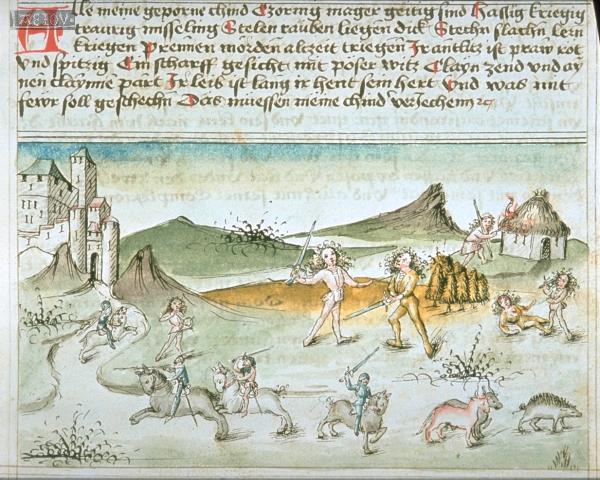 Alle meine geporne chind Czornig mager geitig sind Hassig kriegig
traurig misseling Stelen rauben liegen dick Stechn slachn
kriegen Prennen mörden alczeit triegen Ir antlitz ist praw rot
vnd spitzig Ein scharff gesicht mit poser witz Clayn zend vnd ay
nen claynne part Ir leib ist lang ir hent sein hert Vnd was mit
fewr soll geschechn Das muessen meine chind veriechenn